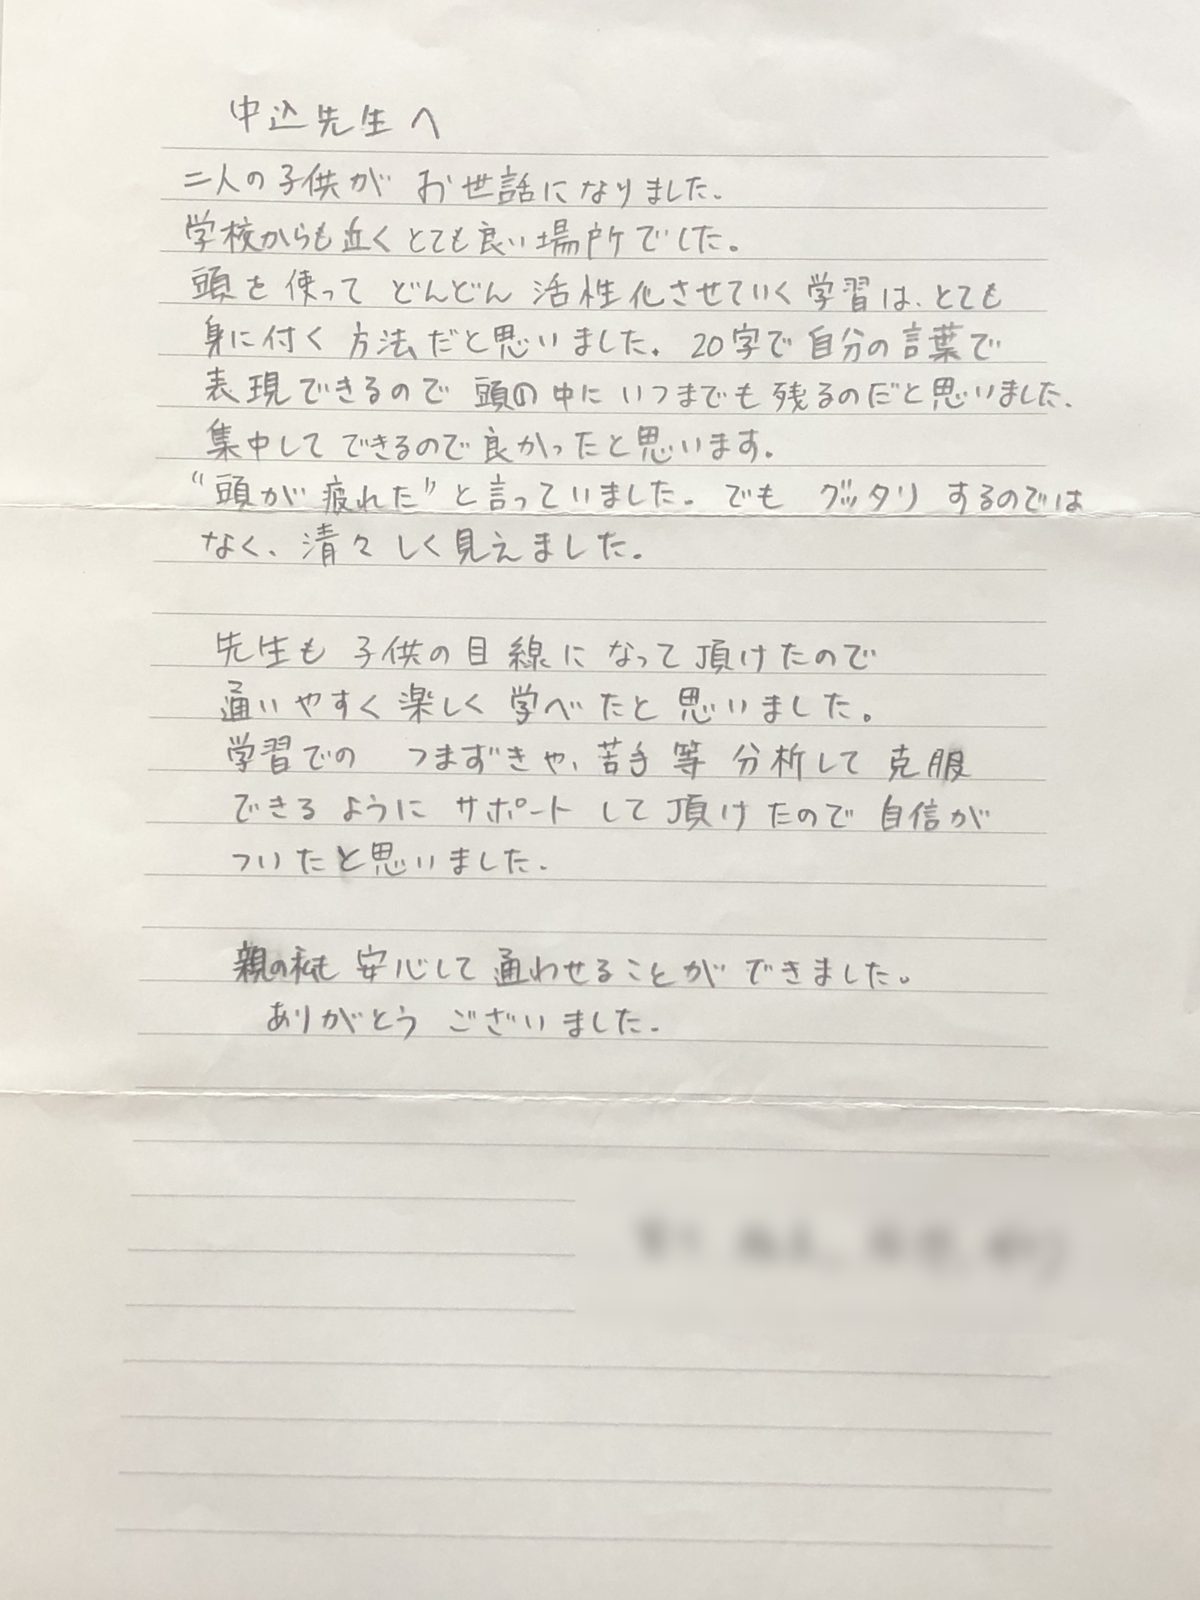 中込先生へ
二人の子供が お世話になりました。
学校からも近く とても良い場所でした。
頭を使って どんどん 活性化させていく学習は、とても
身に付く 方法だと思いました。20字で自分の言葉で
表現できるので 頭の中に いつまでも残るのだと思いました、
集中して できるので良かったと思います。
"頭が疲れた"と言っていました。でも グッタリ するのでは
なく、清々しく見えました。
先生も 子供の目線に なって頂けたので
通いやすく 楽しく 学べたと 思いました。
学習での つまずきや、苦手等 分析して 克服
できるように サポート して頂けたので 自信が
ついたと思いました。
親の私も 安心して 通わせることが できました。
ありがとう ございました。